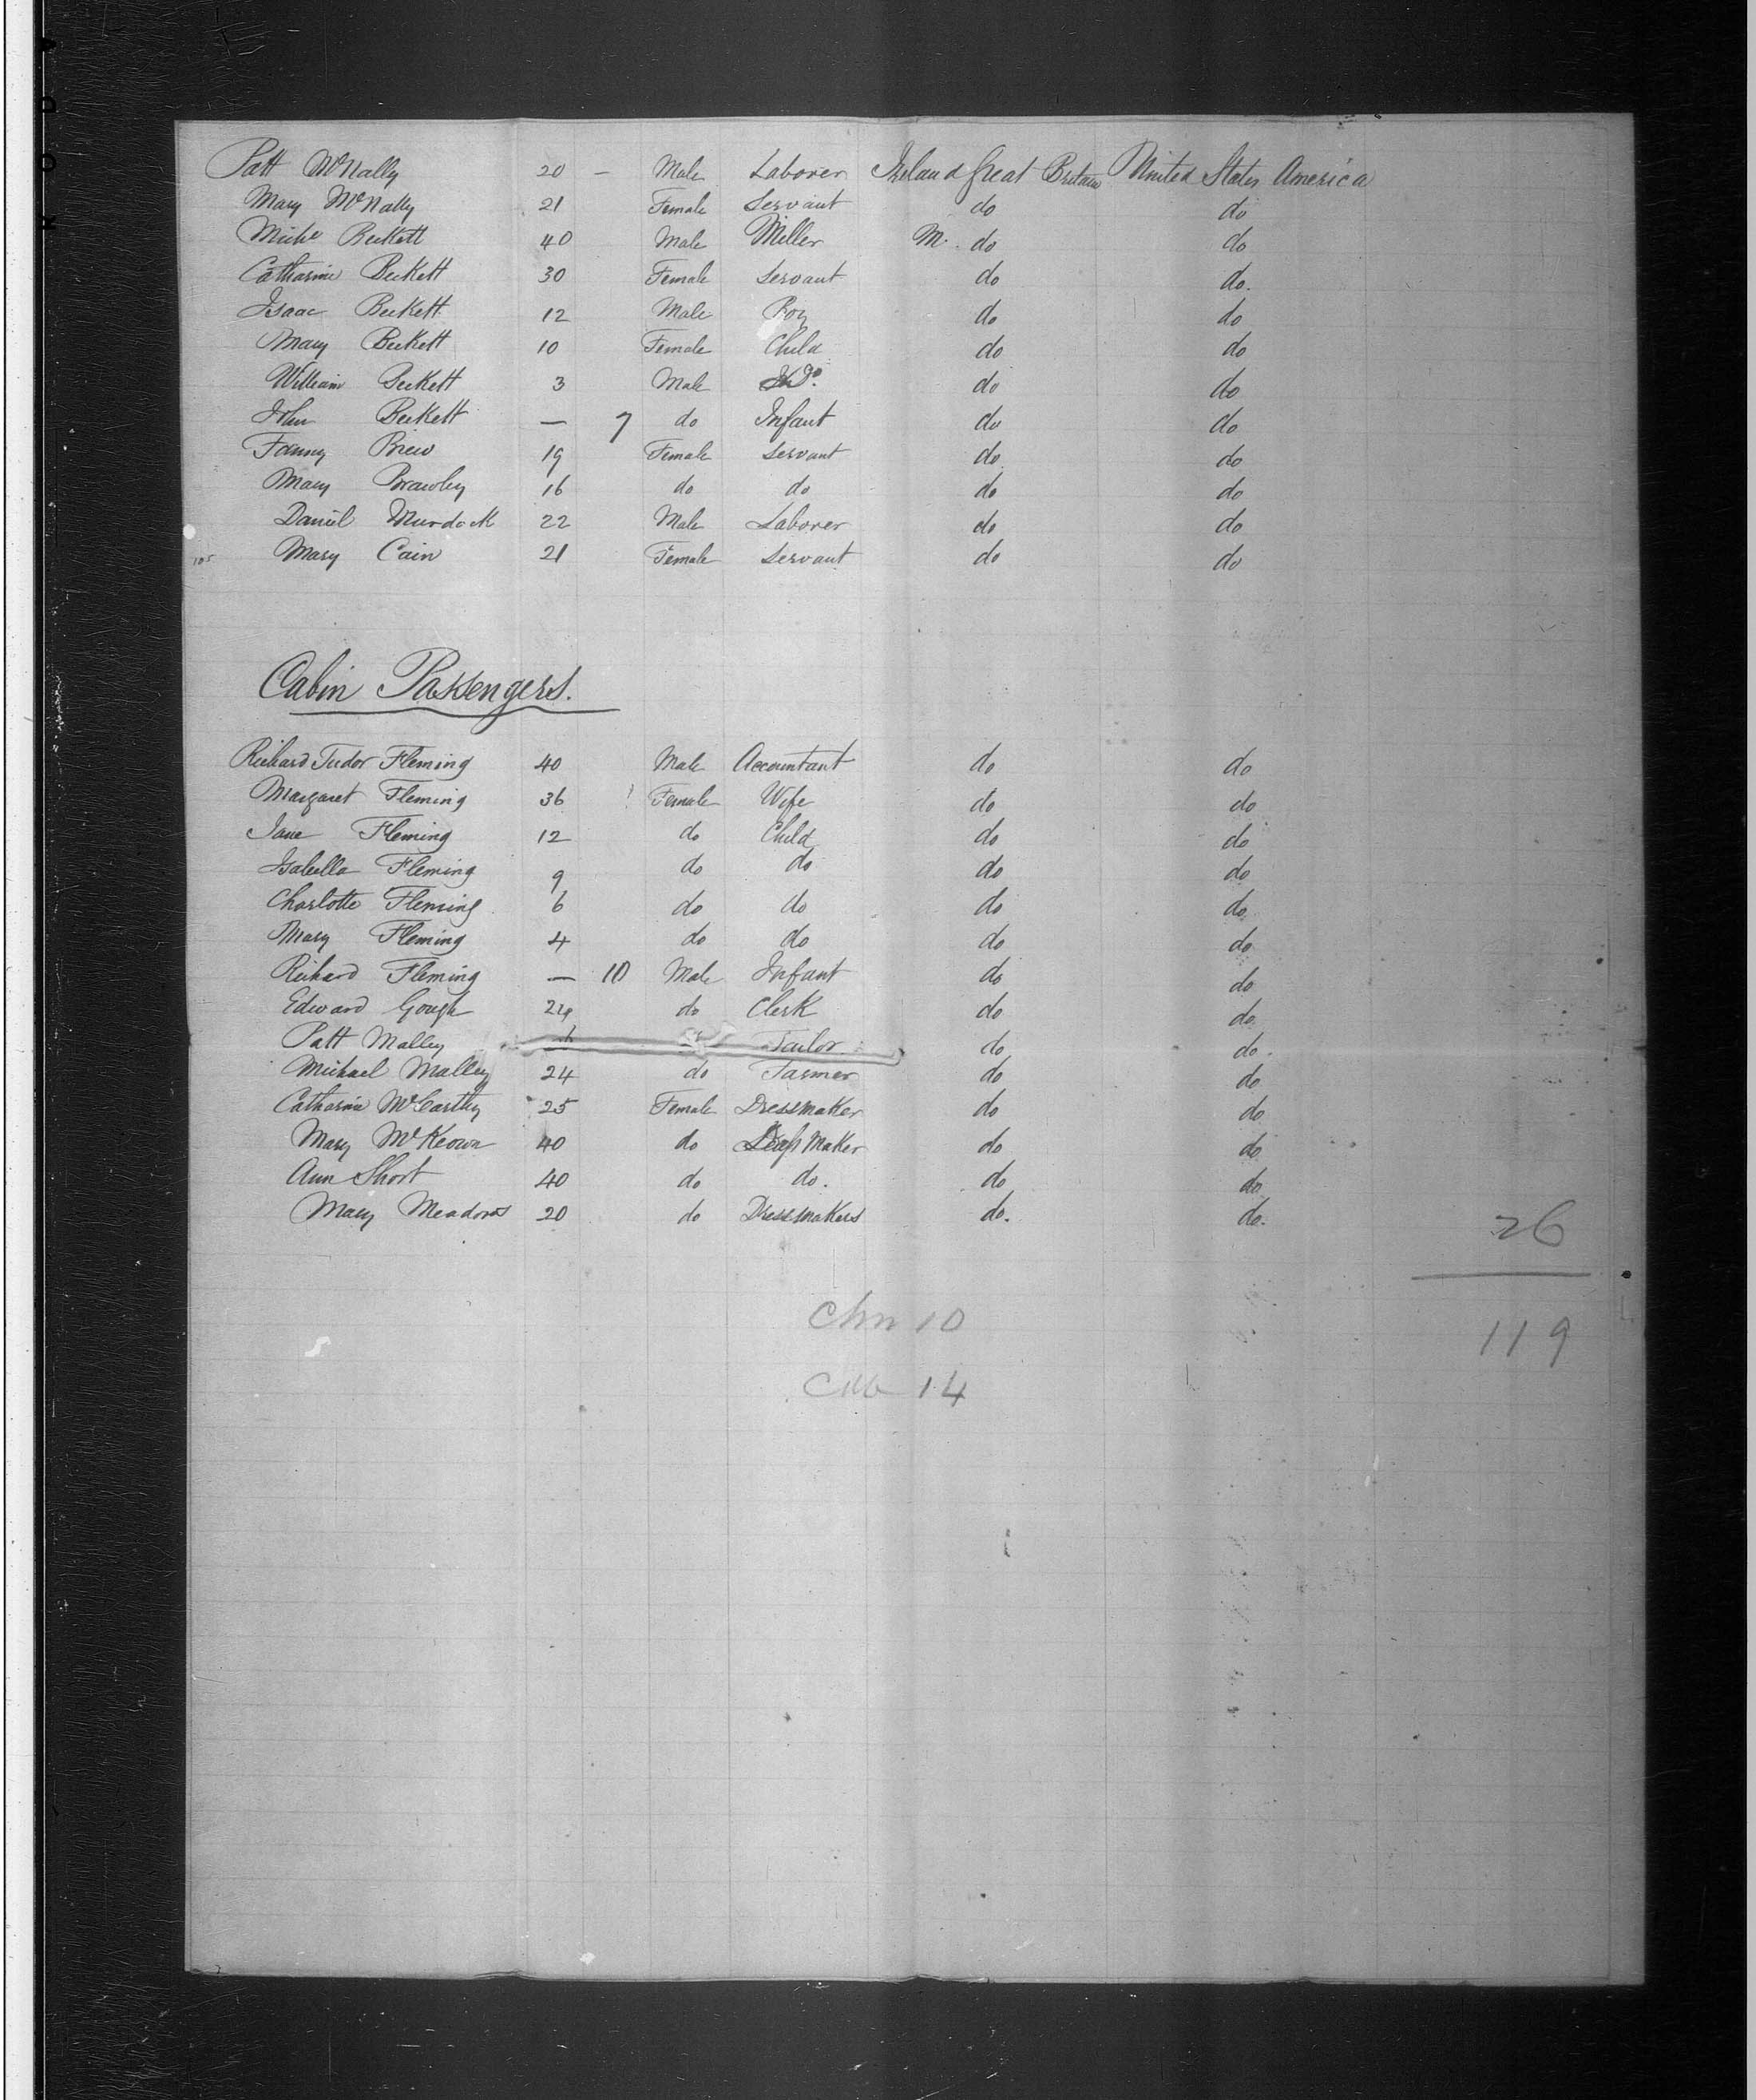 Patt McNally 20 — Male Laborer Ireland Great Britain United States America
Mary McNally 21 Female Servant do do
Miche Beckett 40 Male Miller M. do do
Catharine Beckett 30 Female Servant do do.
Isaac Beckett 12 Male Boy do do
Mary Beckett 10 Female Child do do
William Beckett 3 Male Do. do do
John Beckett — 7 do Infant do do
Fanny Brew 19 Female Servant do do
Mary Brawley 16 do do do do
Daniel Murdock 22 Male Laborer do do
105 Mary Cain 21 Female Servant do do
Cabin Passengers.
Richard Tudor Fleming 40 Male Accountant do do
Margaret Fleming 36 Female Wife do do
Jane Fleming 12 do Child do do
Isabella Fleming 9 do do do do
Charlotte Fleming 6 do do do do
Mary Fleming 4 do do do do
Richard Fleming — 10 Male Infant do do
Edward Gough 24 do Clerk do do
Patt Malley Tailor do do.
Michael Malley 24 do Farmer do do
Catharine McCarthy 25 Female Dressmaker do do
Mary McKeown 40 do Maker do do
Ann Short 40 do do. do do
Mary Meadows 20 do Dressmakers do. do.
26
Chn 10
119
14